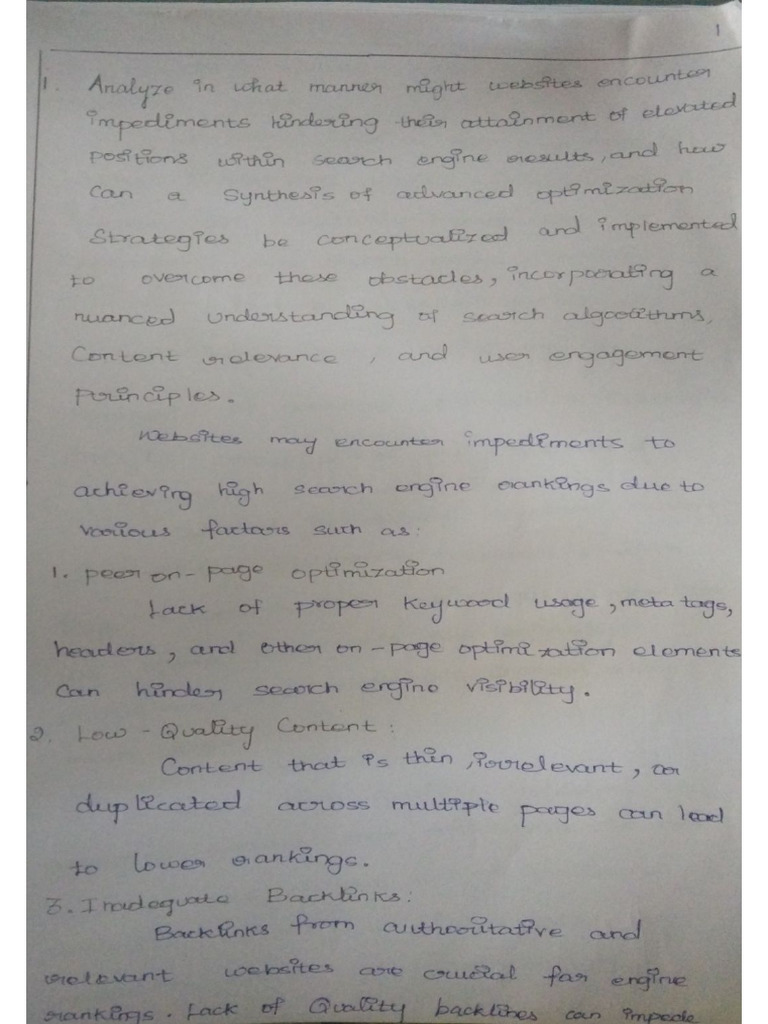 1
1. Analyze in what manner might websites encounter
impediments hindering their attainment of elevated
positions within search engine results, and how
can a synthesis of advanced optimization
Strategies be conceptualized and implemented
to overcome these obstacles, incorporating a
nuanced understanding of search algorithms,
Content relevance, and user engagement
Principles.
Websites may encounter impediments to
achieving high search engine rankings due to
various factors such as:
1. peer on-page optimization
Lack of proper keyword usage, meta tags,
headers, and other on-page optimization elements
can hinder search engine visibility.
2. Low-Quality Content:
Content that is thin, irrelevant, or
duplicated across multiple pages can lead
to lower rankings.
3. Inadequate Backlinks:
Backlinks from authoritative and
relevant websites are crucial for engine
rankings. Lack of Quality backlines can impede